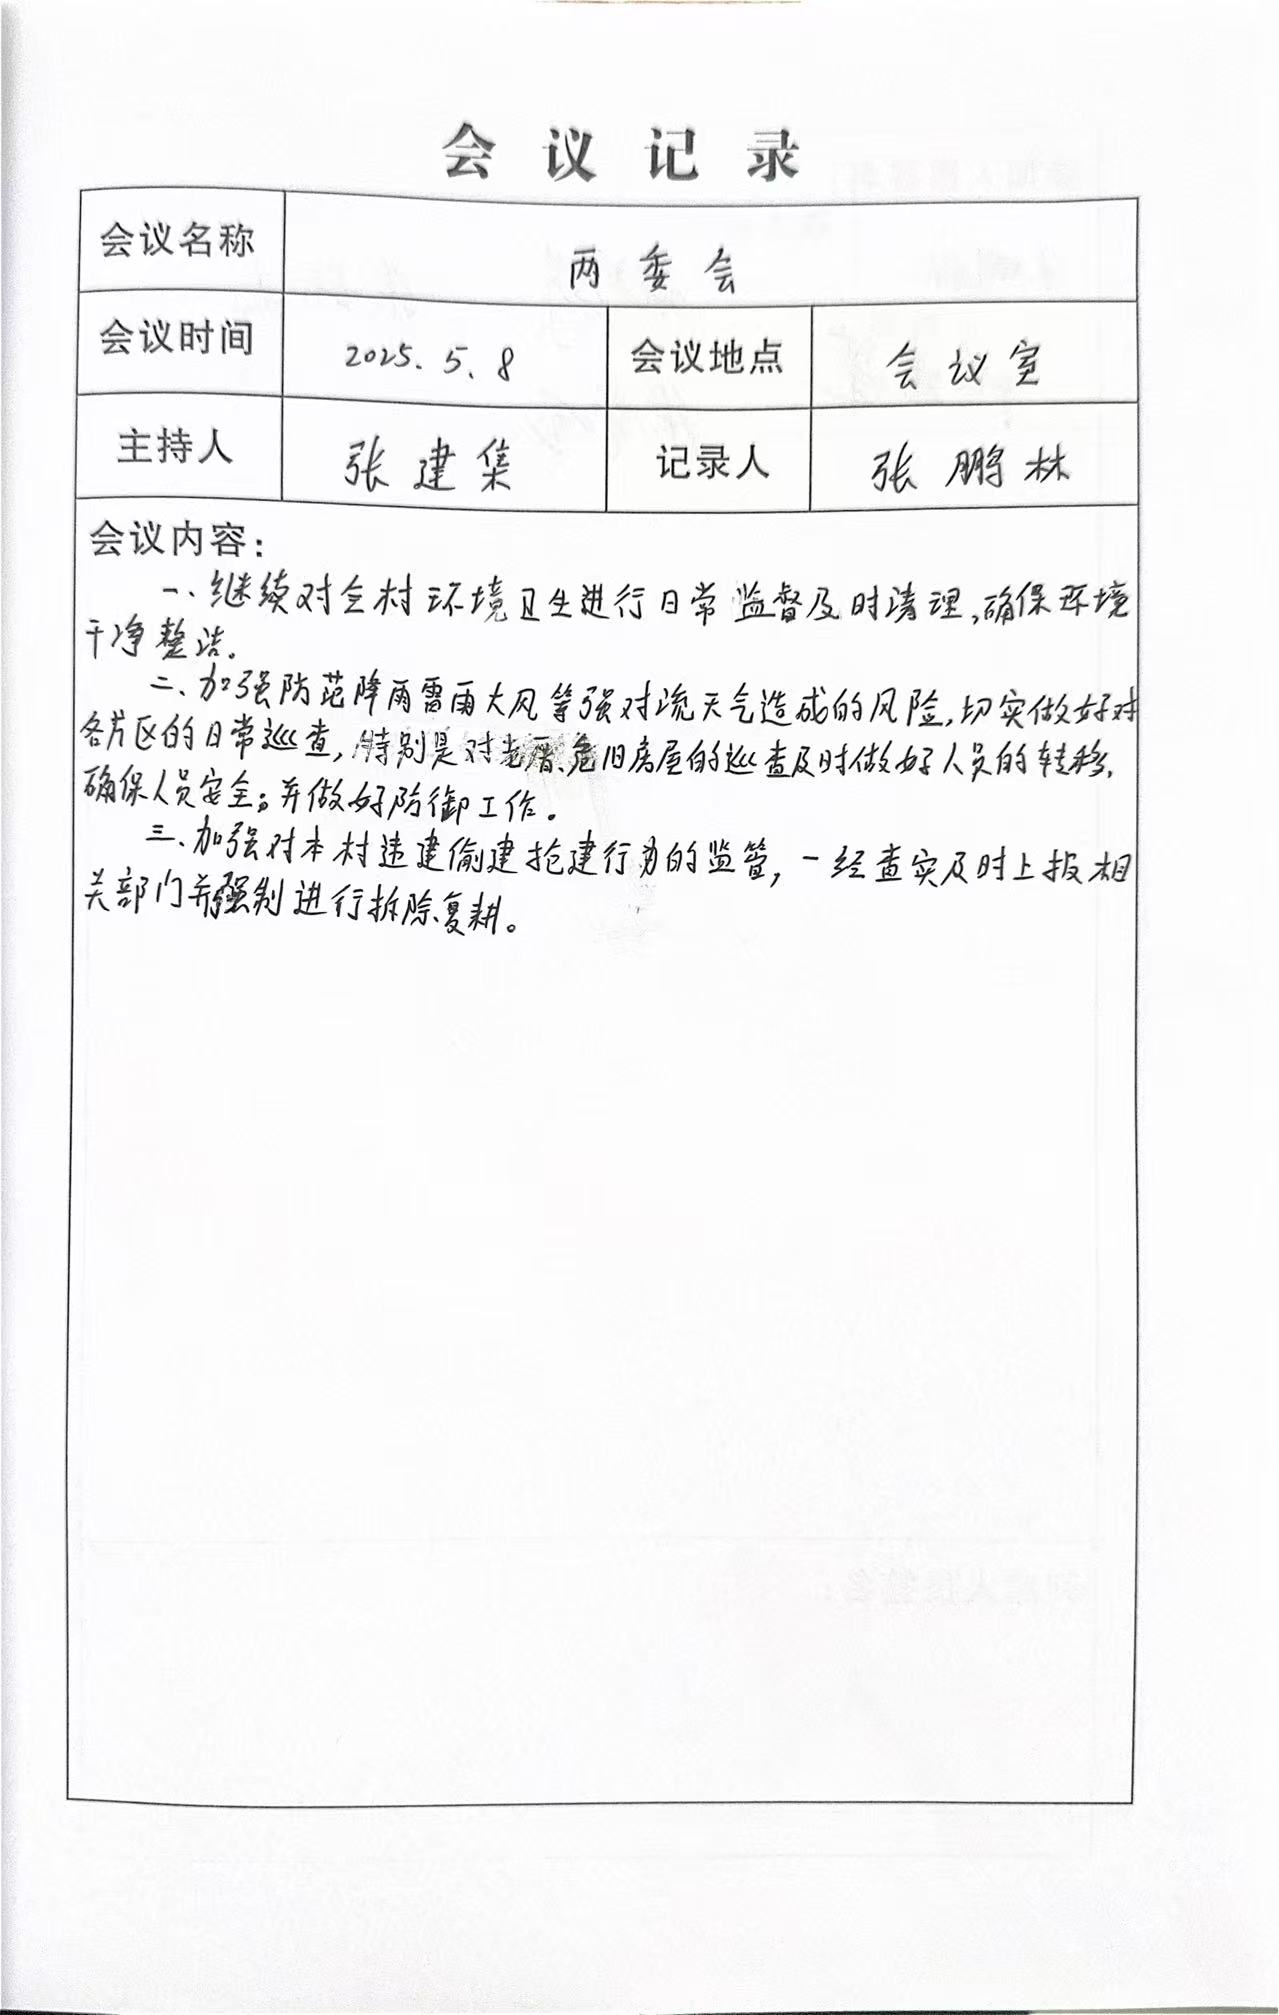 会议记录
会议名称 两委会
会议时间 2025.5.8 会议地点 会议室
主持人 张建集 记录人 张鹏林
会议内容：
一、继续对全村环境卫生进行日常监督及时清理，确保环境
干净整洁。
二、加强防范降雨雷雨大风等强对流天气造成的风险，切实做好对
各片区的日常巡查，特别是对老厝、危旧房屋的巡查及时做好人员的转移，
确保人员安全；并做好防御工作。
三、加强对本村违建偷建抢建行为的监管，一经查实及时上报相
关部门并强制进行拆除复耕。